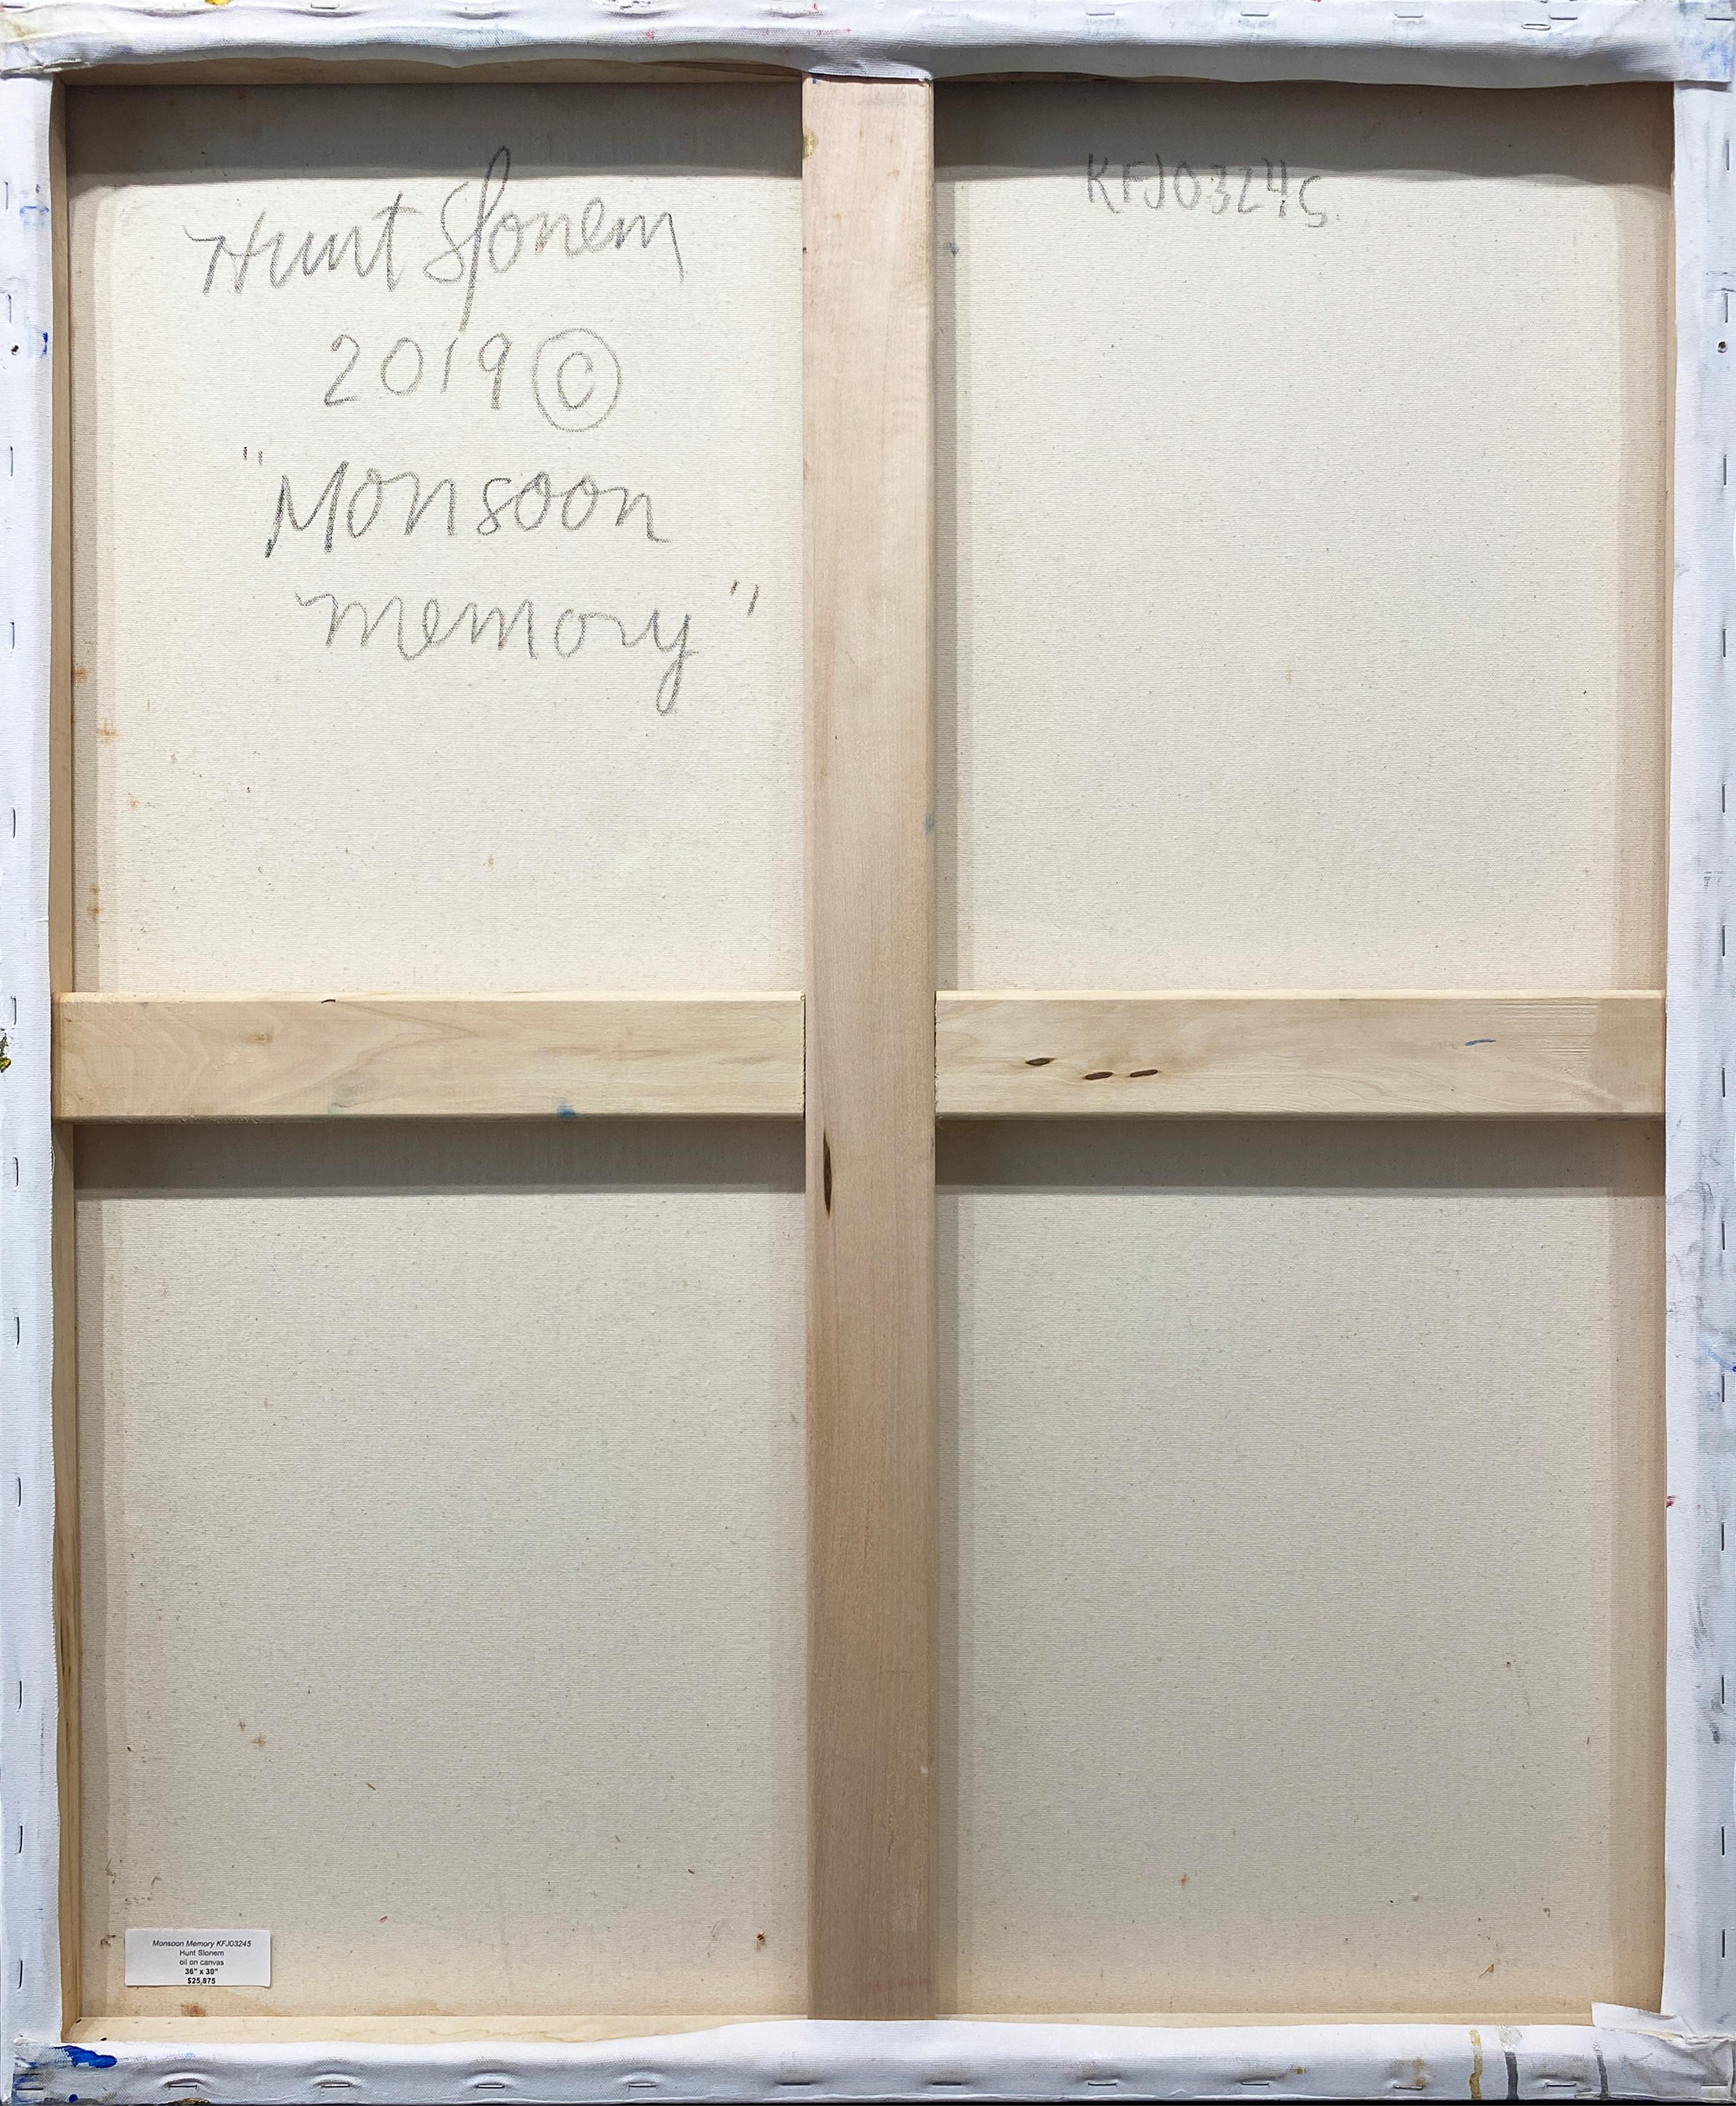 Hunt Slonem
2019 ©
"Monsoon
memory"
KFJ03245
Monsoon Memory KFJ03245
Hunt Slonem
oil on canvas
36" x 30"
$25,875